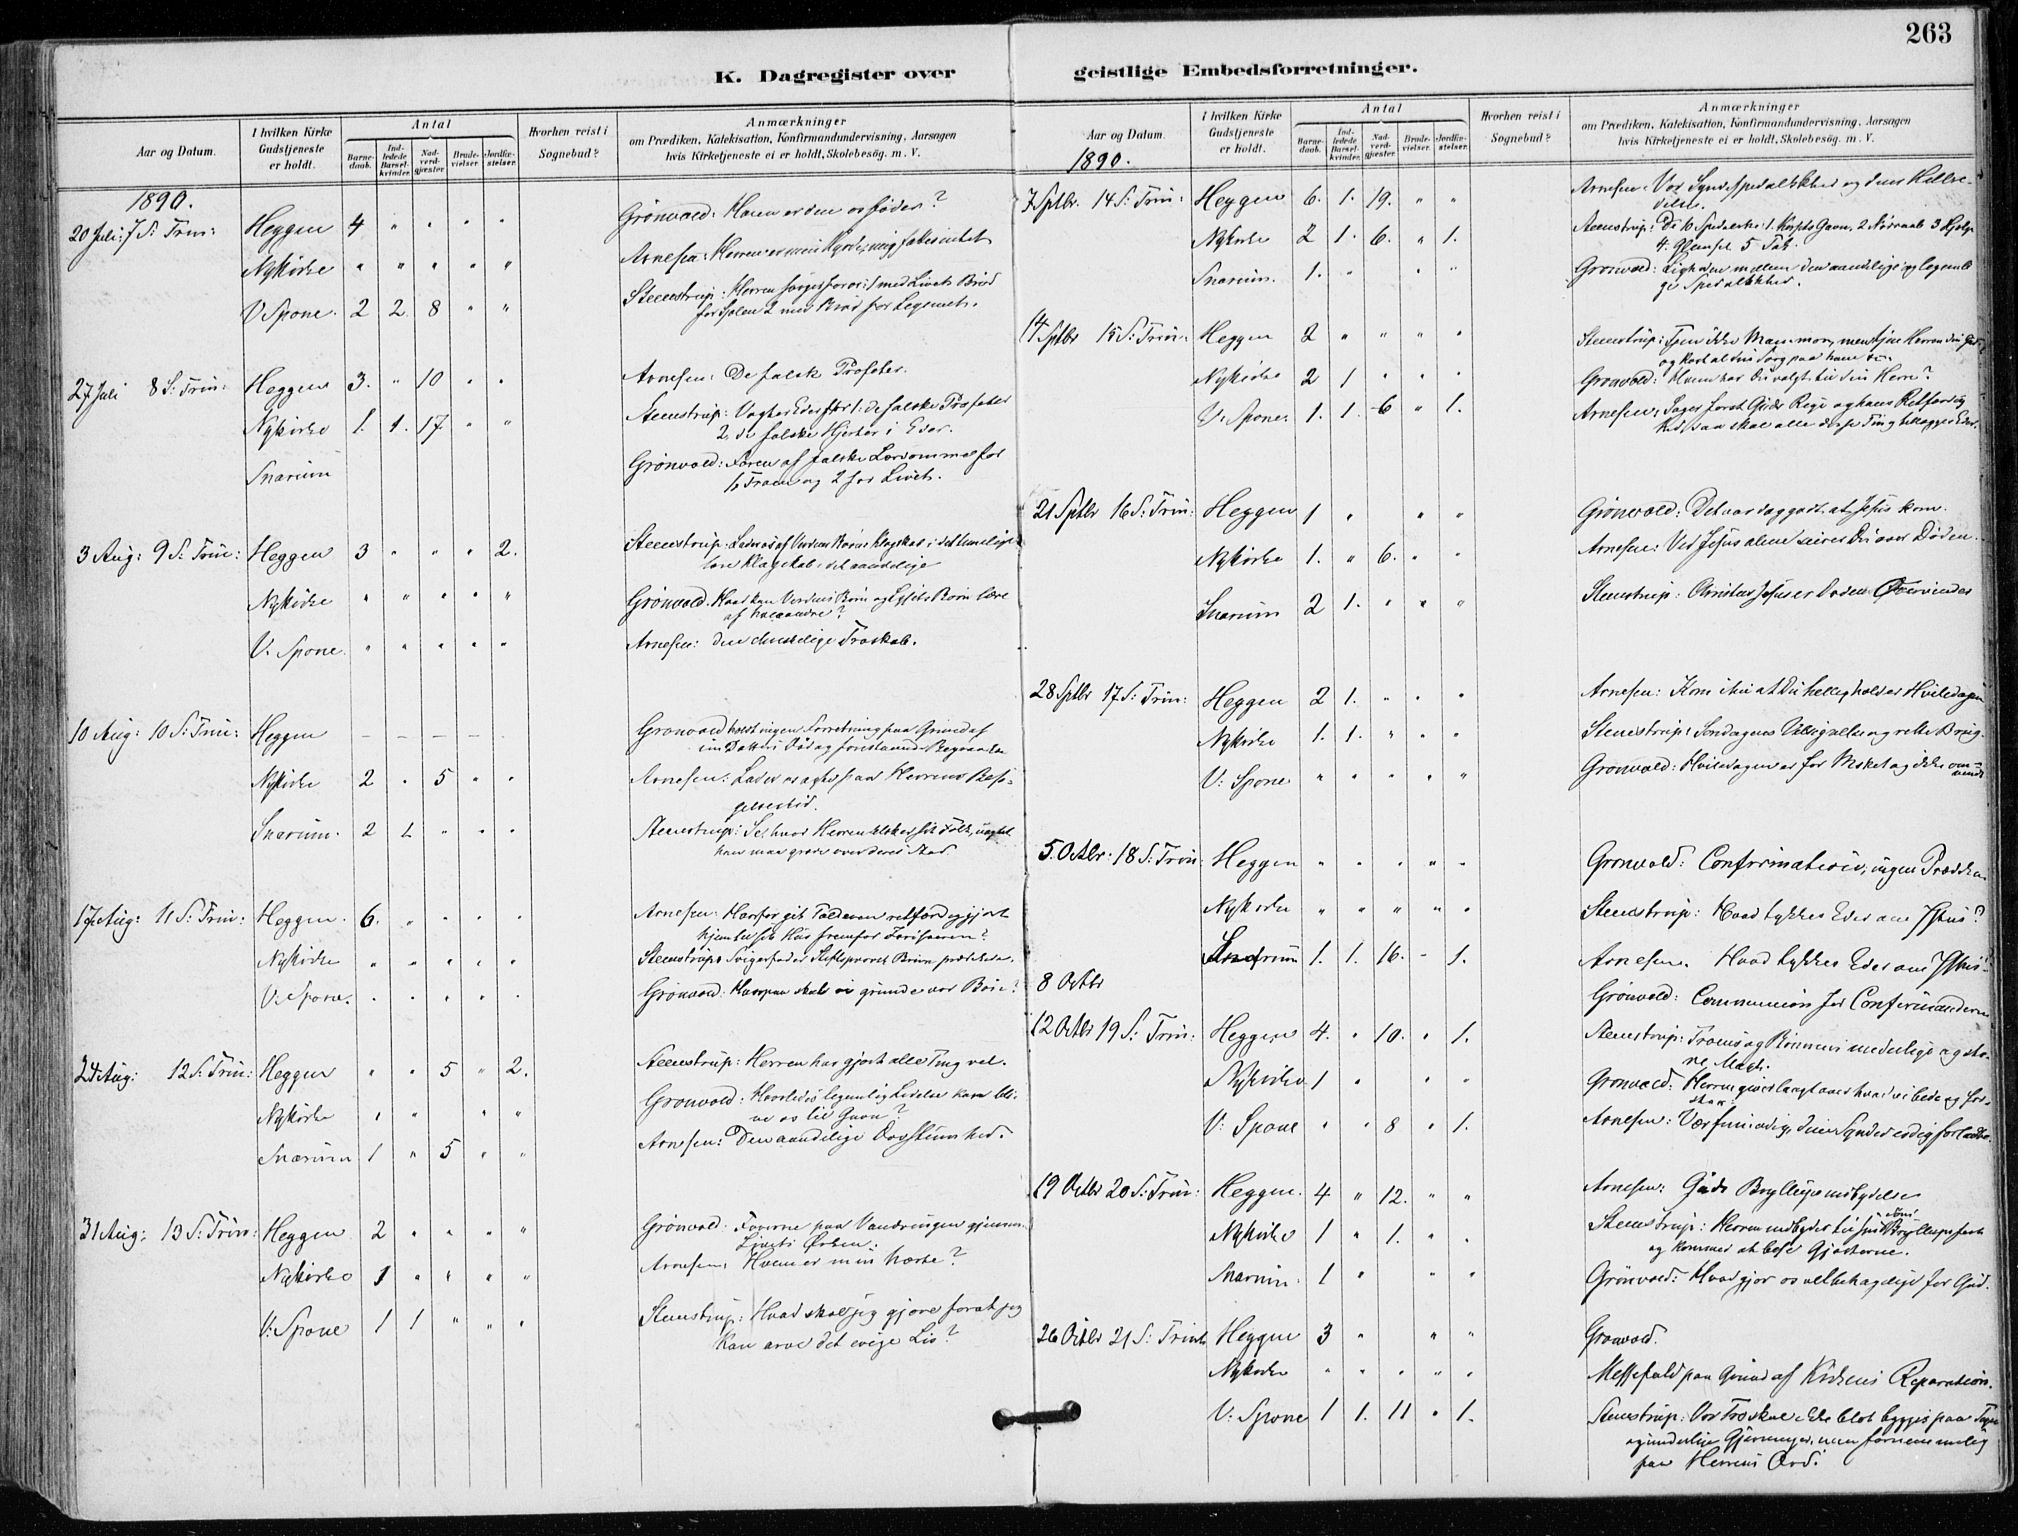 263
K. Dagregister over geistlige Embedsforretninger.
Aar og Datum.
I hvilken Kirke Gudstjeneste er holdt.
Antal
Barne-daab.
Ind-ledede Barsel-kvinder.
Nad-verd-gjæster.
Brude-vielser.
Jordfæ-stelser.
Hvorhen reist i Sognebud?
Anmærkninger
om Prædiken, Katekisation, Konfirmandundervisning, Aarsagen
hvis Kirketjeneste ei er holdt, Skolebesög, m. V.
1890.
20 Juli: 7 S: Trin: Heggen 4 " " " " Grönvold: Hvem er den os föder?
Nykirke " " " " " Arnesen: Herren er min Hyrde, mig fattes intet
V. Spone. 2 2 8 " " Steenstrup: Herren sörger for os: 1 med Livets Bröd
for Sjelen 2 med Bröd for Legemet.
27 Juli 8 S: Trin: Heggen 3. " 10 " " Arnesen: De falske Profeter.
Nykirke 1. 1. 17 " " Steenstrup: Vogter Eder for 1. de falske Profeter
2. de falske Hjerter i Eder.
Snarum Grönvold: Faren af falske Lærdomme for
1. Troen og 2 for Livet.
3 Aug: 9 S: Trin: Heggen 3 " " " 2. Steenstrup: Lader os af Verdens Börns Klogskab i det timelige
lære Klogskab i det aandelige
Nykirke " " " " " Grönvold. Hvad kan Verdens Börn og Lysets Börn lære
af hverandre?
V. Spone. " " " " " Arnesen: Den christelige Troskab.
10 Aug: 10 S: Trin: Heggen – – – – Grönvold holdt ingen Forretning paa Grund af
sin Datters Död og forestaaende Begravelse
Nykirke 2 " 5 " " Arnesen: Lader os agte paa Herrens Besö-
gelsestid.
Snarum. 2 1 " " " Steenstrup: Se, hvor Herren elsker sit Folk,
han maa græde over deres Stad.
17 Aug: 11 S: Trin: Heggen. 6. " " " " Arnesen: Hvorfor gik Tolderen retfærdiggjort
hjem til sit Hus fremfor Farisæeren?
Nykirke " " " " " Steenstrups Svigerfader Stiftsprovst Bruun prædikede.
V. Spone. " " " " " Grönvold: Hvorpaa skal vi grunde vor Bön?
24 Aug: 12 S: Trin: Heggen " " 5 " 2. Steenstrup: Herren har gjort alle Ting vel.
Nykirke " " " " Grönvold: Hvorledes legemlig Lidelse kan bli-
ve os til Gavn?
Snarum 1 " 5 " " Arnesen: Den aandelige Dovstumhed.
31 Aug: 13 S: Trin: Heggen 2 " " " " Grönvold. paa Vandringen gjennem
Livets Örken.
Nykirke 1 " " " " Arnesen: Hvem er min Næste?
V. Spone 1 1 " " " Steenstrup: Hvad skal jeg gjöre forat jeg
kan arve det evige Liv?
Aar og Datum.
I hvilken Kirke Gudstjeneste er holdt.
Antal
Barne-daab.
Ind-ledede Barsel-kvinder.
Nad-verd-gjæster.
Brude-vielser.
Jordfæ-stelser.
Hvorhen reist i Sognebud?
Anmærkninger
om Prædiken, Katekisation, Konfirmandundervisning, Aarsagen
hvis Kirketjeneste ei er holdt, Skolebesög, m. V.
1890.
7 Sptbr. 14 S: Trin: Heggen 6. 1. 19. " " Arnesen: Vor Synds Spedalskhed og dens Helbre-
delse.
Nykirke 2 1. 6. " 1. Steenstrup: De 10 Spedalske: 1. Korsets Gavn, 2 Nödraab 3 Hjelp
4. Glemsel 5 Tak.
Snarum. 1. " " " Grönvold: Ligheden mellem den aandelige og legemli-
ge Spedalskhed.
14 Sptbr 15 S: Trin: Heggen 2 " " " " Steenstrup: Tjen ikke Mammon, men tjen Herren din Gud
og kast al din Sorg paa ham
Nykirke 2 1 " " " Grönvold: Hvem har Du valgt til din Herre?
V. Spone. 1. 1. 6 " 1. Arnesen: Söger först Guds Rige og hans Retfærdig
hed, saa skal alle disse Ting tillægges Eder.
21 Sptbr 16 S: Trin: Heggen 1 " " " Grönvold: Det var dog godt, at Jesus kom.
Nykirke 1. " 6. " " Arnesen: Ved Jesus alene seirer Du over Döden.
Snarum 2 1. " " " Steenstrup: Christus Jesus er Dödens Overvinder
28 Sptbr 17 S: Trin: Heggen 2 1. " " " Arnesen: Kom ihu at Du helligholder Hviledagen
Nykirke 1. 1. " " " Steenstrup: Söndagens Velsignelse og rette Brug.
V: Spone " " " " " Grönvold: Hviledagen er for Msket og ikke om-
vendt
5. Octbr: 18 S: Trin Heggen " " " " " Grönvold: Confirmation, ingen Prædiken
Nykirke " " " " " Steenstrup: Hvad tykkes Eder om Xstus?
Snarum 1. 1. 16. " 1. Arnesen. Hvad tykkes Eder om Xstus?
8 Octbr Grönvold: Communion for Confirmanderne
12 Octbr 19 S: Trin: Heggen 4. " 10. " 1. Steenstrup: Troens og Bönnens underlige og sto-
re Magt.
Nykirke 1 " " " Grönvold: Herren giver langt over hvad vi bede og for-
staa.
V: Spone " " 8 " 1. Arnesen: Vær frimodig, dine Synder ere dig forladte.
19 Octbr 20 S: Trin: Heggen. 4 " 12. " " Arnesen: Guds Bryllupsindbydelse
Nykirke 1 " 1. " " Steenstrup: Herren indbyder til sin Söns Bryllupsfest
og kommer at bese Gjæsterne.
Snarum. 1 " " " Grönvold: Hvad gjör os velbehagelige for Gud.
26 Octbr 21 S: Trinit. Heggen 3 " " " Grönvold.
Nykirke " " " " " Messefald paa Grund af Kirkens Reparation.
V: Spone 1 1. 11 " 1. Steenstrup: Vor Tro skal ikke blot bygges paa Tegn
og underlige Gjerninger, men fornemmelig
paa Herrens Ord.